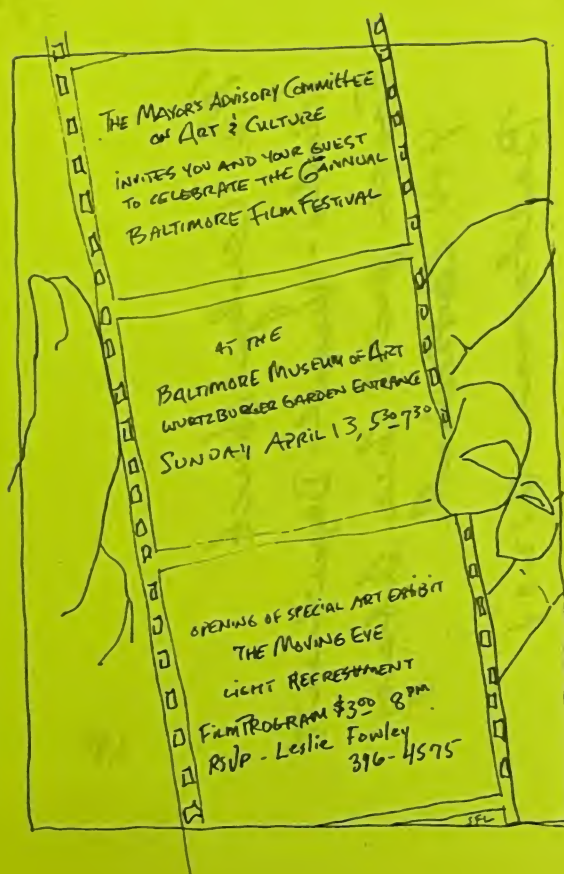 THE MAYOR'S ADVISORY COMMITTEE
ON ART & CULTURE
INVITES YOU AND YOUR GUEST
TO CELEBRATE THE 6TH ANNUAL
BALTIMORE FILM FESTIVAL
AT THE
BALTIMORE MUSEUM OF ART
WURTZBURGER GARDEN ENTRANCE
SUNDAY APRIL 13, 5:30 7:30
OPENING OF SPECIAL ART EXHIBIT
THE MOVING EYE
LIGHT REFRESHMENT
FILM PROGRAM $3.00 8PM
RSVP - Leslie Fowley
396-4575
SFL